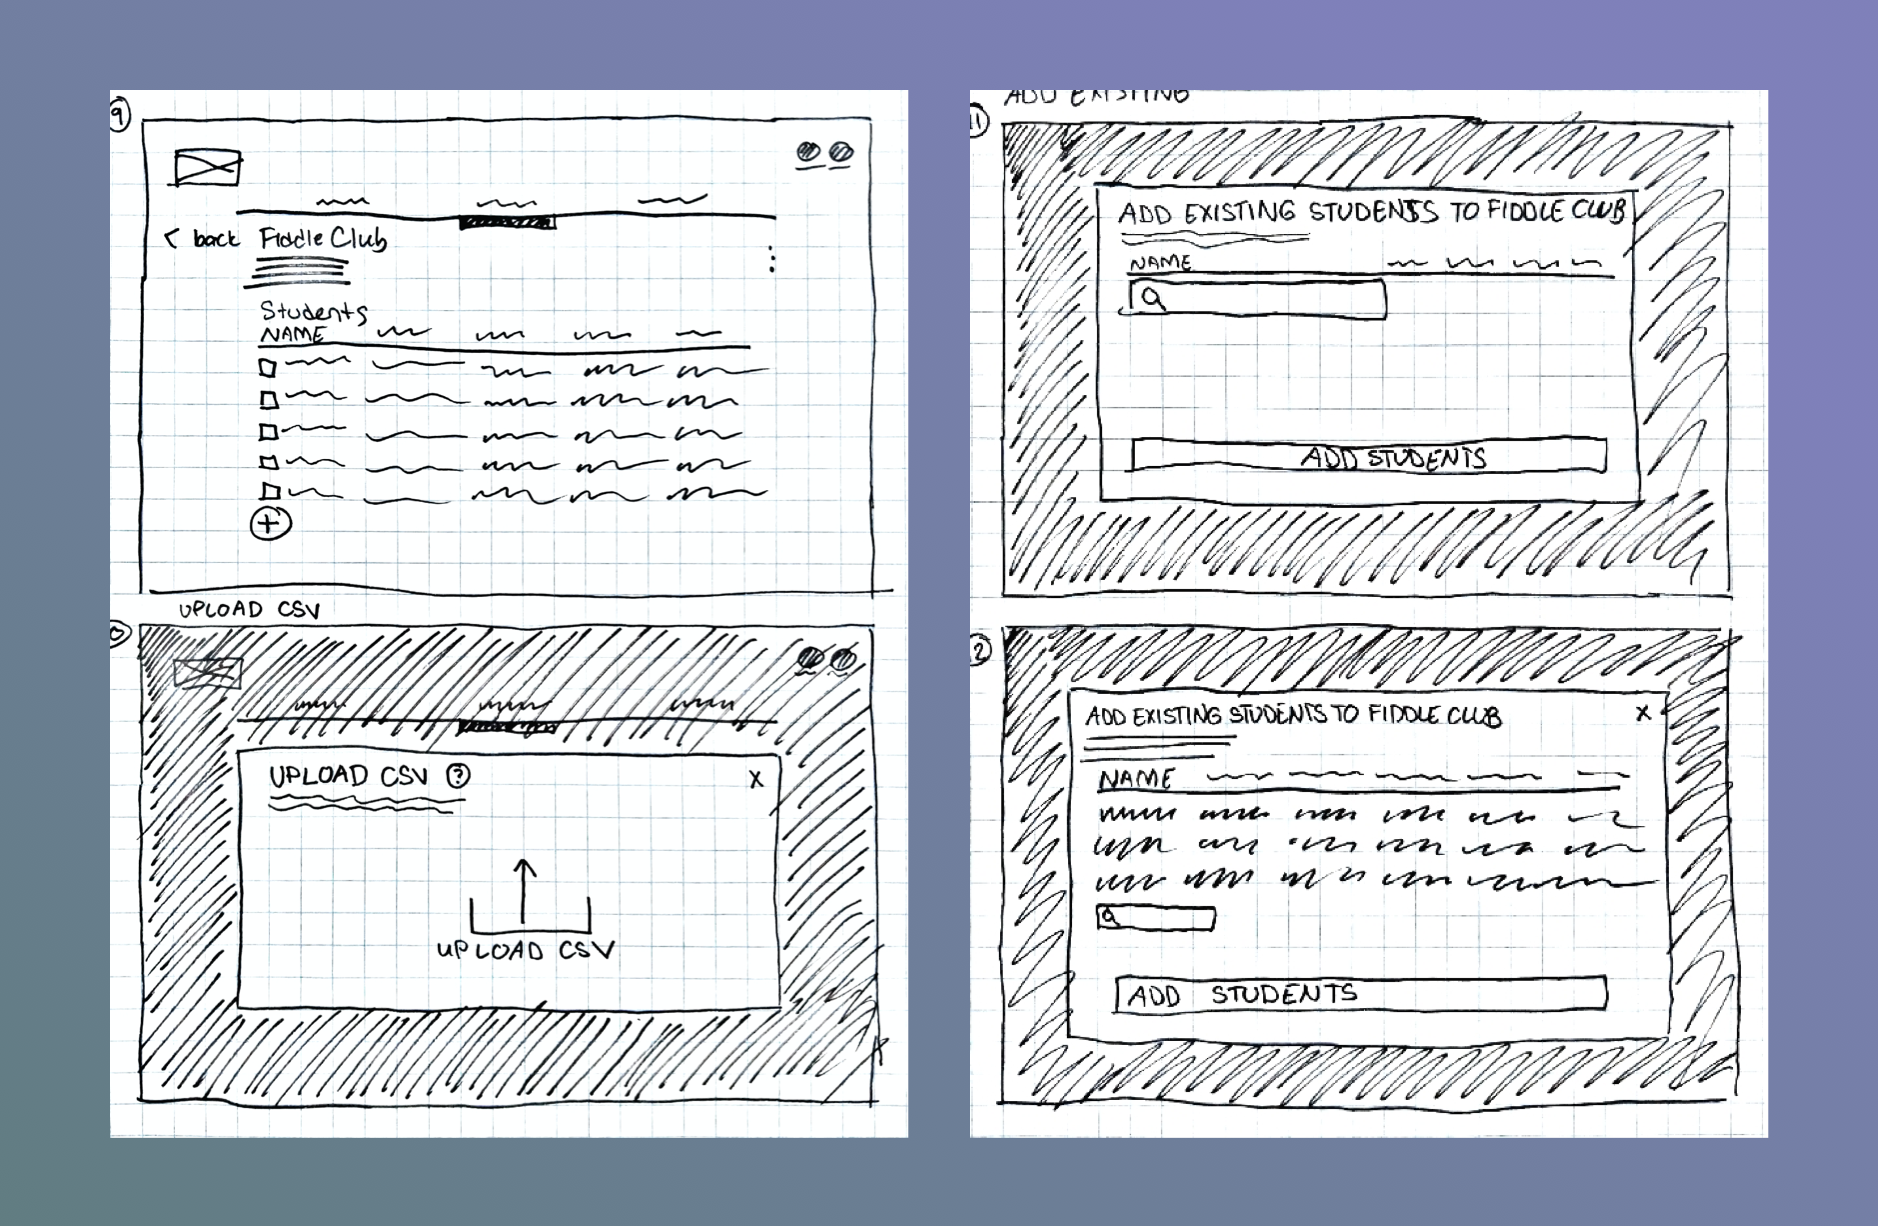 9
< back Fiddle Club
Students
NAME
+
UPLOAD CSV
UPLOAD CSV ?
X
UPLOAD CSV
ADD EXISTING
11
ADD EXISTING STUDENTS TO FIDDLE CLUB
NAME
ADD STUDENTS
2
ADD EXISTING STUDENTS TO FIDDLE CLUB
X
NAME
ADD STUDENTS